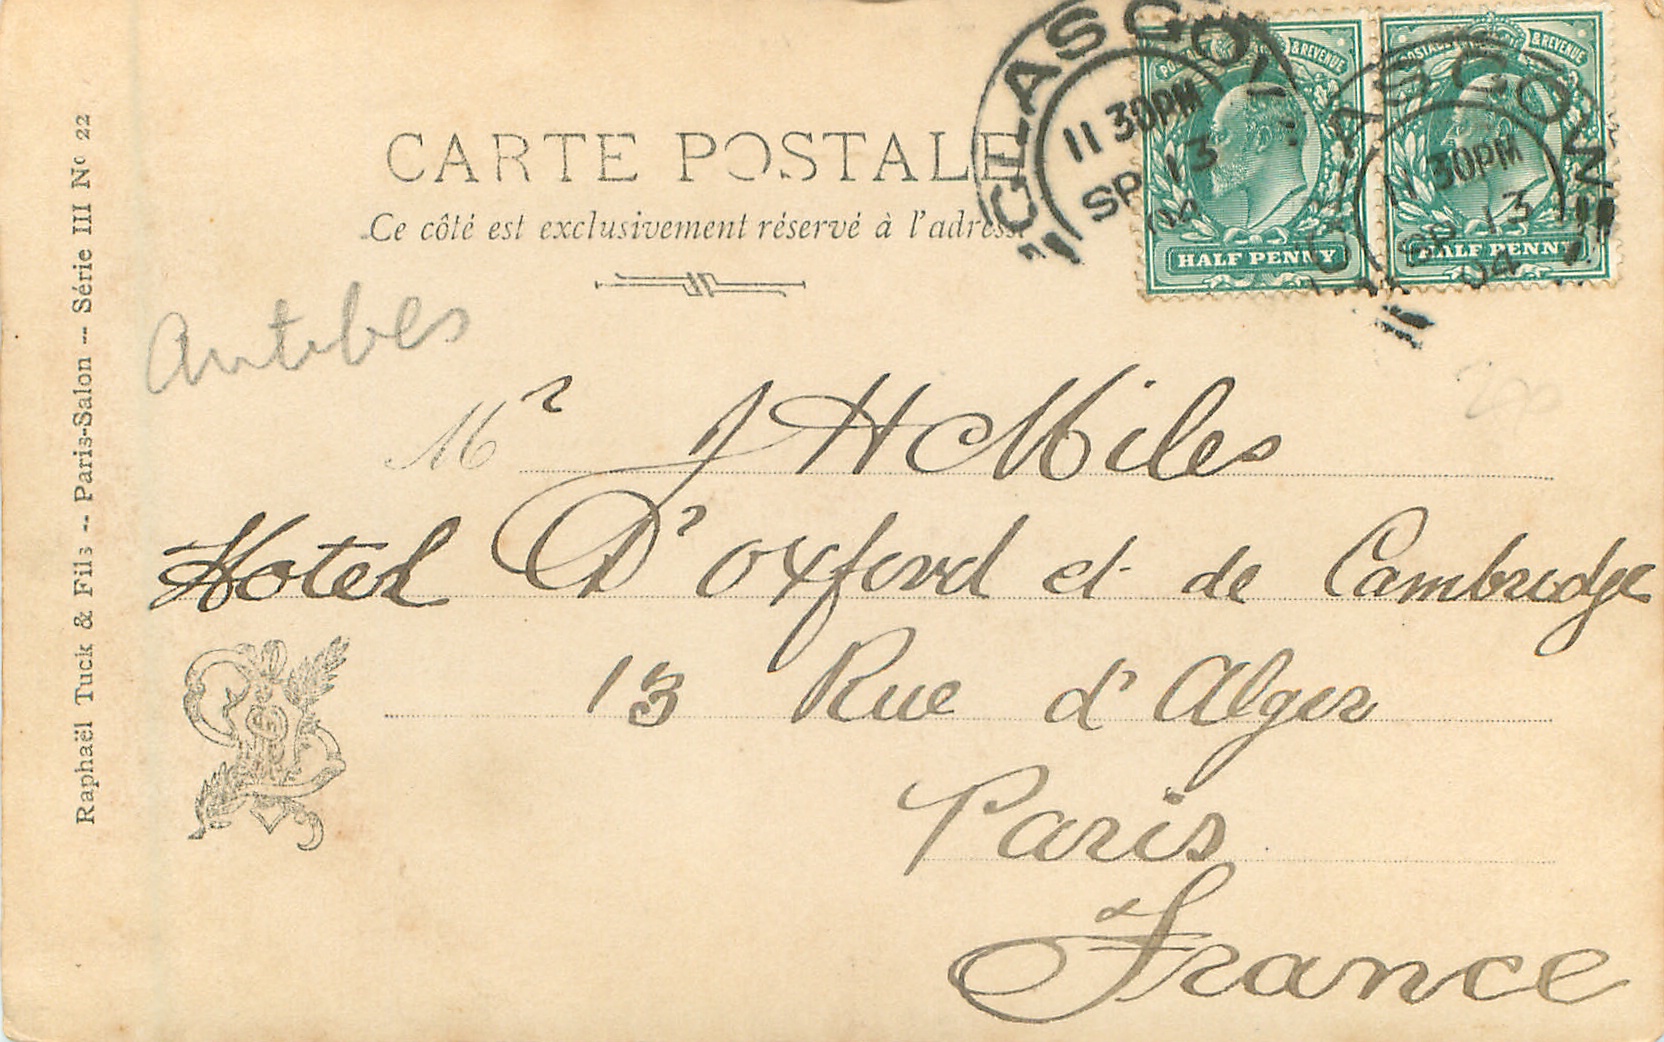 CARTE POSTALE
Ce côté est exclusivement réservé à l'adresse
GLASGOW
11 30PM
SP 13
04
POSTAGE & REVENUE
HALF PENNY
GLASGOW
11 30PM
SP 13
04
POSTAGE & REVENUE
HALF PENNY
Antibes
Mr J H Miles
Hotel D'oxford et de Cambridge
13 Rue d'Alger
Paris
France
Raphaël Tuck & Fils -- Paris-Salon -- Série III No 22